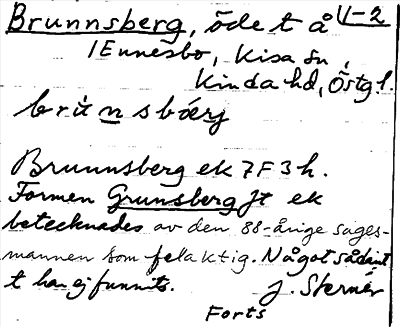 Brunnsberg, öde t å 1-2
/Ennesbo, Kisa sn,
Kinda hd, Östgl.
brùnsbærj
Brunnsberg ek 7F3h.
Formen Grunsberg Jt ek
betecknades av den 88-årige sages-
mannen som felaktig. Något sådant
t har ej funnits. J. Sternér
Forts